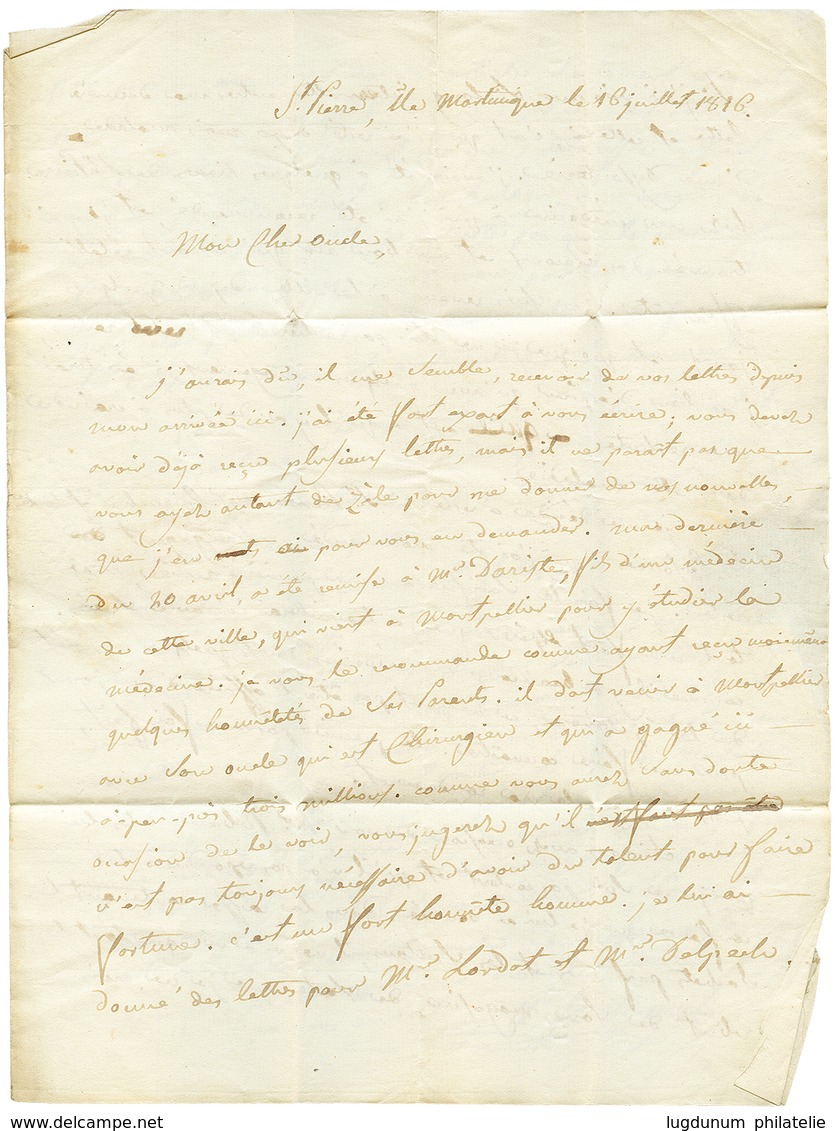 St Pierre, île Martinique le 16 juillet 1816.
Mon Cher oncle,
j'aurais dû, il me semble, recevoir de vos lettres depuis
mon arrivéé ici. j'ai été fort exact à vous écrire; vous devez
avoir déjà reçu plusieurs lettres, mais il ne parait pas que
vous ayez autant de zèle pour me donner de vos nouvelles,
que j'en ai pour vous en demander. ma dernière
du 20 avril, a été remise à Mr. Dariste, fils d'un médecin
de cette ville, qui vient à Montpellier pour y étudier la
médecine. je vous le recommande comme ayant reçu moi même
quelques honnêtetés de ses Parents. il doit venir à Montpellier
avec son oncle qui est Chirurgien et qui a gagné ici
à-peu-près trois millions. comme vous aurez sans doute
occasion de le voir, vous jugerez qu'il
n'est pas toujours nécessaire d'avoir du talent pour faire
fortune. c'est un fort honnête homme. je lui ai
donné des lettres pour Mr. Lordat et Mr. Delpech.
delcampe.net
lugdunum philatelie